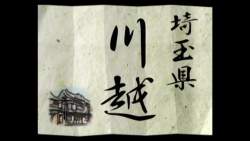 埼玉県
川越